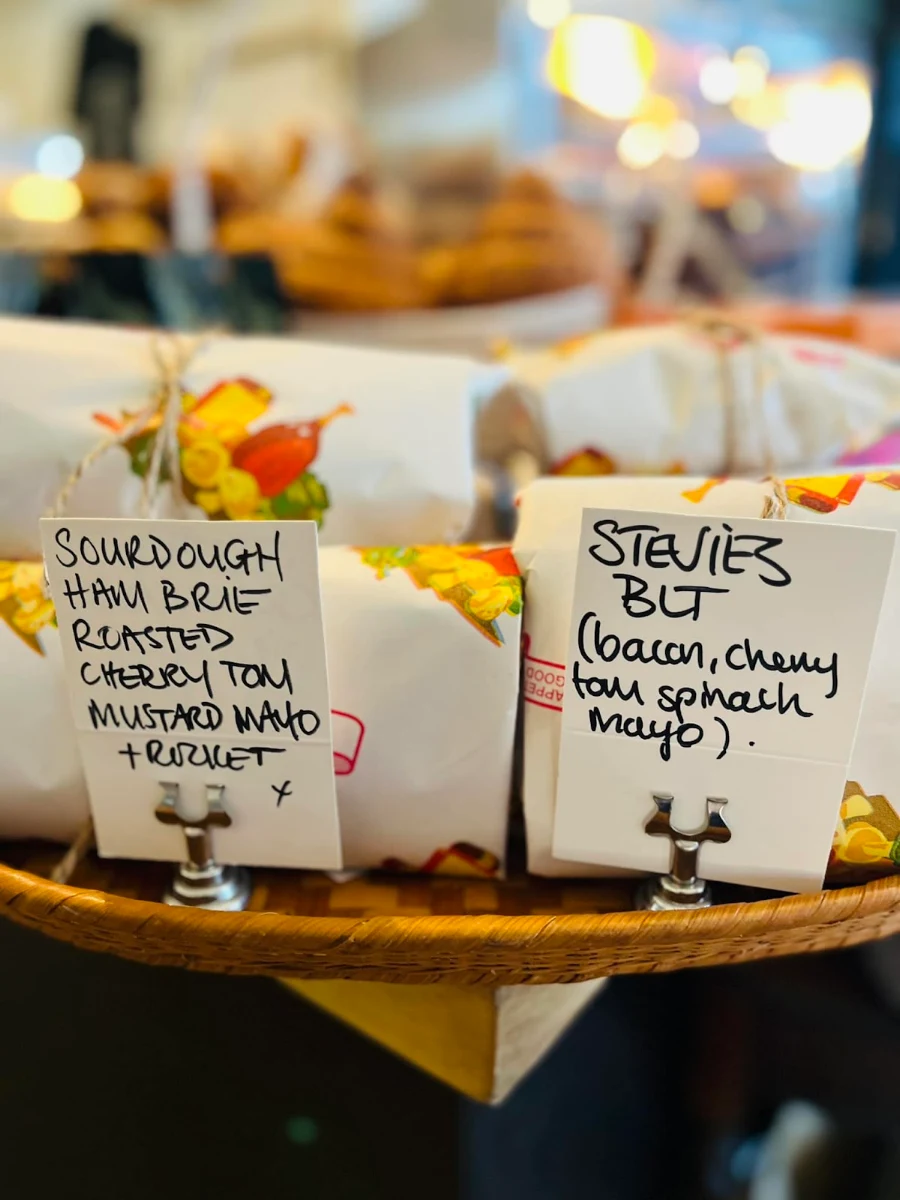 SOURDOUGH
HAM BRIE
ROASTED
CHERRY TOM
MUSTARD MAYO
+ ROCKET
x
STEVIES
BLT
(bacon, cherry
tom spinach
mayo).
GOOD